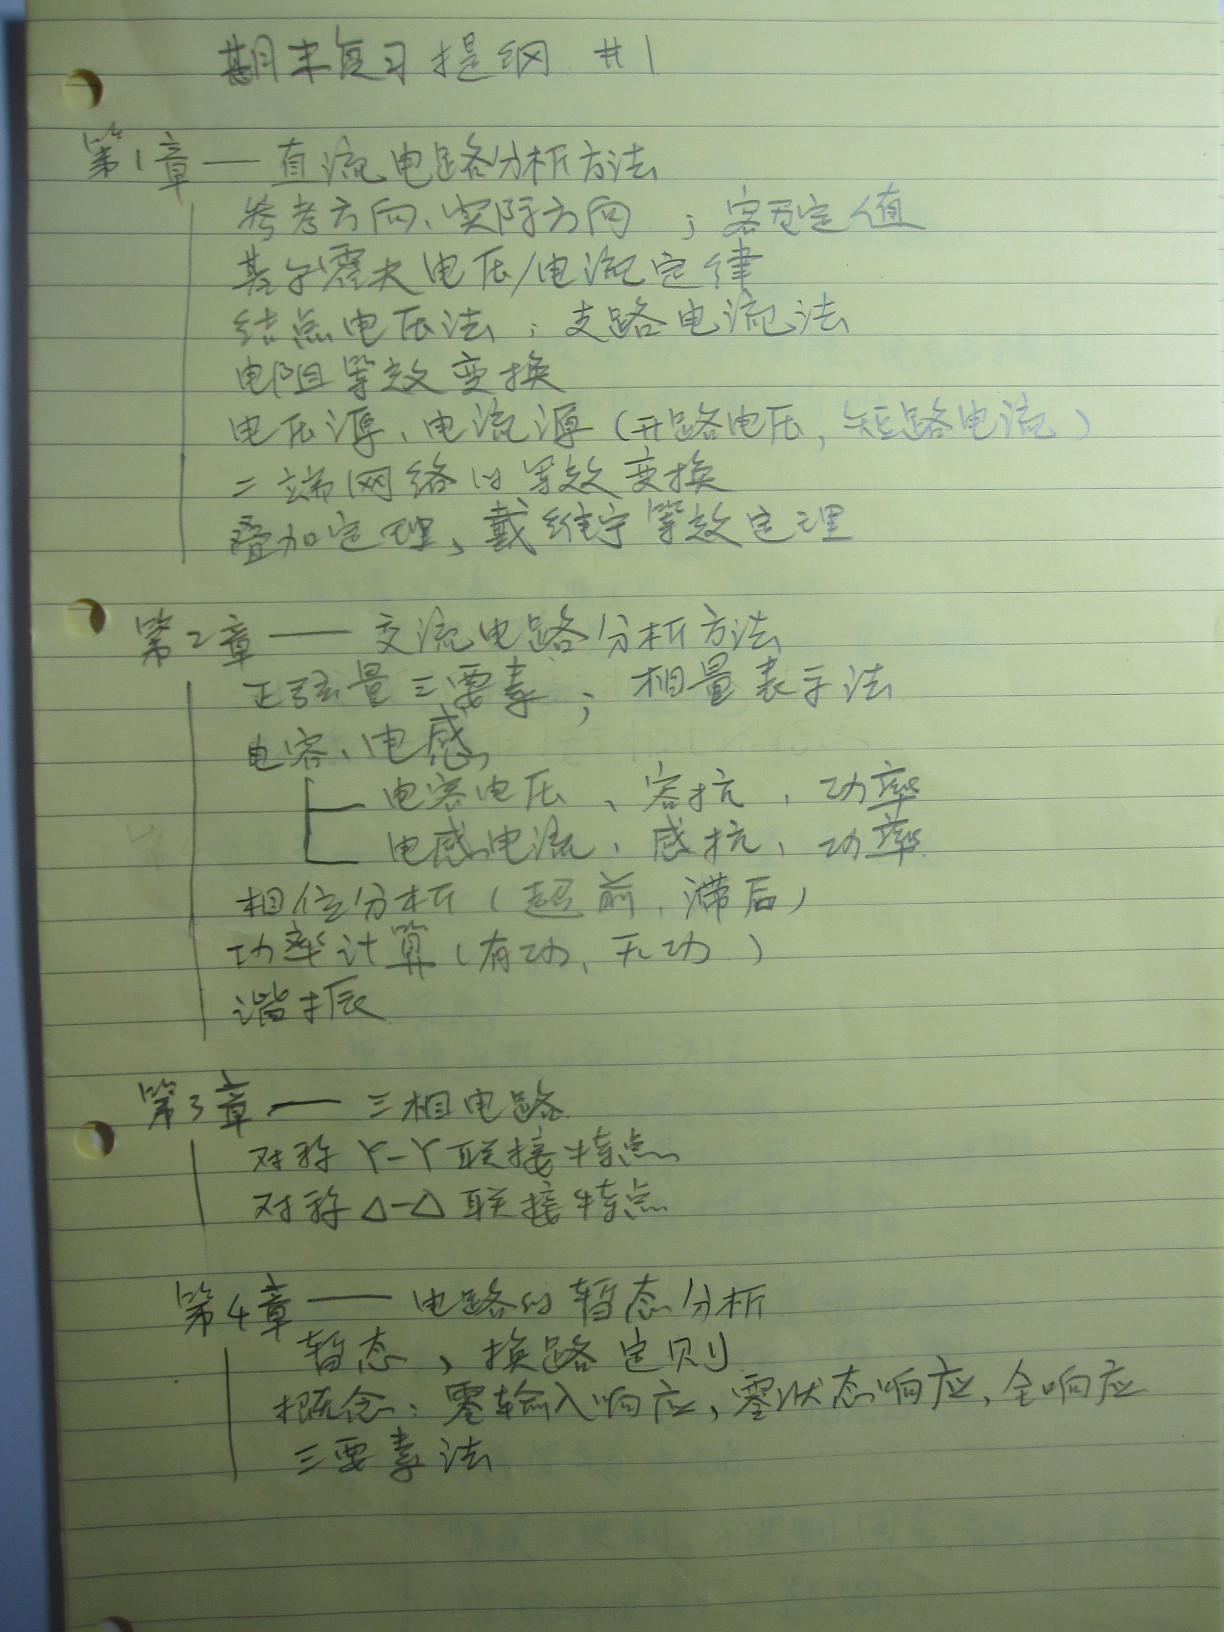 期末复习提纲 #1
第1章——直流电路分析方法
参考方向、实际方向 ; 客观定值
基尔霍夫电压/电流定律
结点电压法 ; 支路电流法
电阻等效变换
电压源、电流源 (开路电压, 短路电流)
二端网络的等效变换
叠加定理、戴维宁等效定理
第2章——交流电路分析方法
正弦量三要素 ; 相量表示法
电容、电感
电容电压、容抗、功率
电感电流、感抗、功率
相位分析 (超前、滞后)
功率计算 (有功、无功)
谐振
第3章——三相电路
对称 Y-Y 联接特点
对称 △-△ 联接特点
第4章——电路的暂态分析
暂态、换路定则
概念: 零输入响应, 零状态响应, 全响应
三要素法